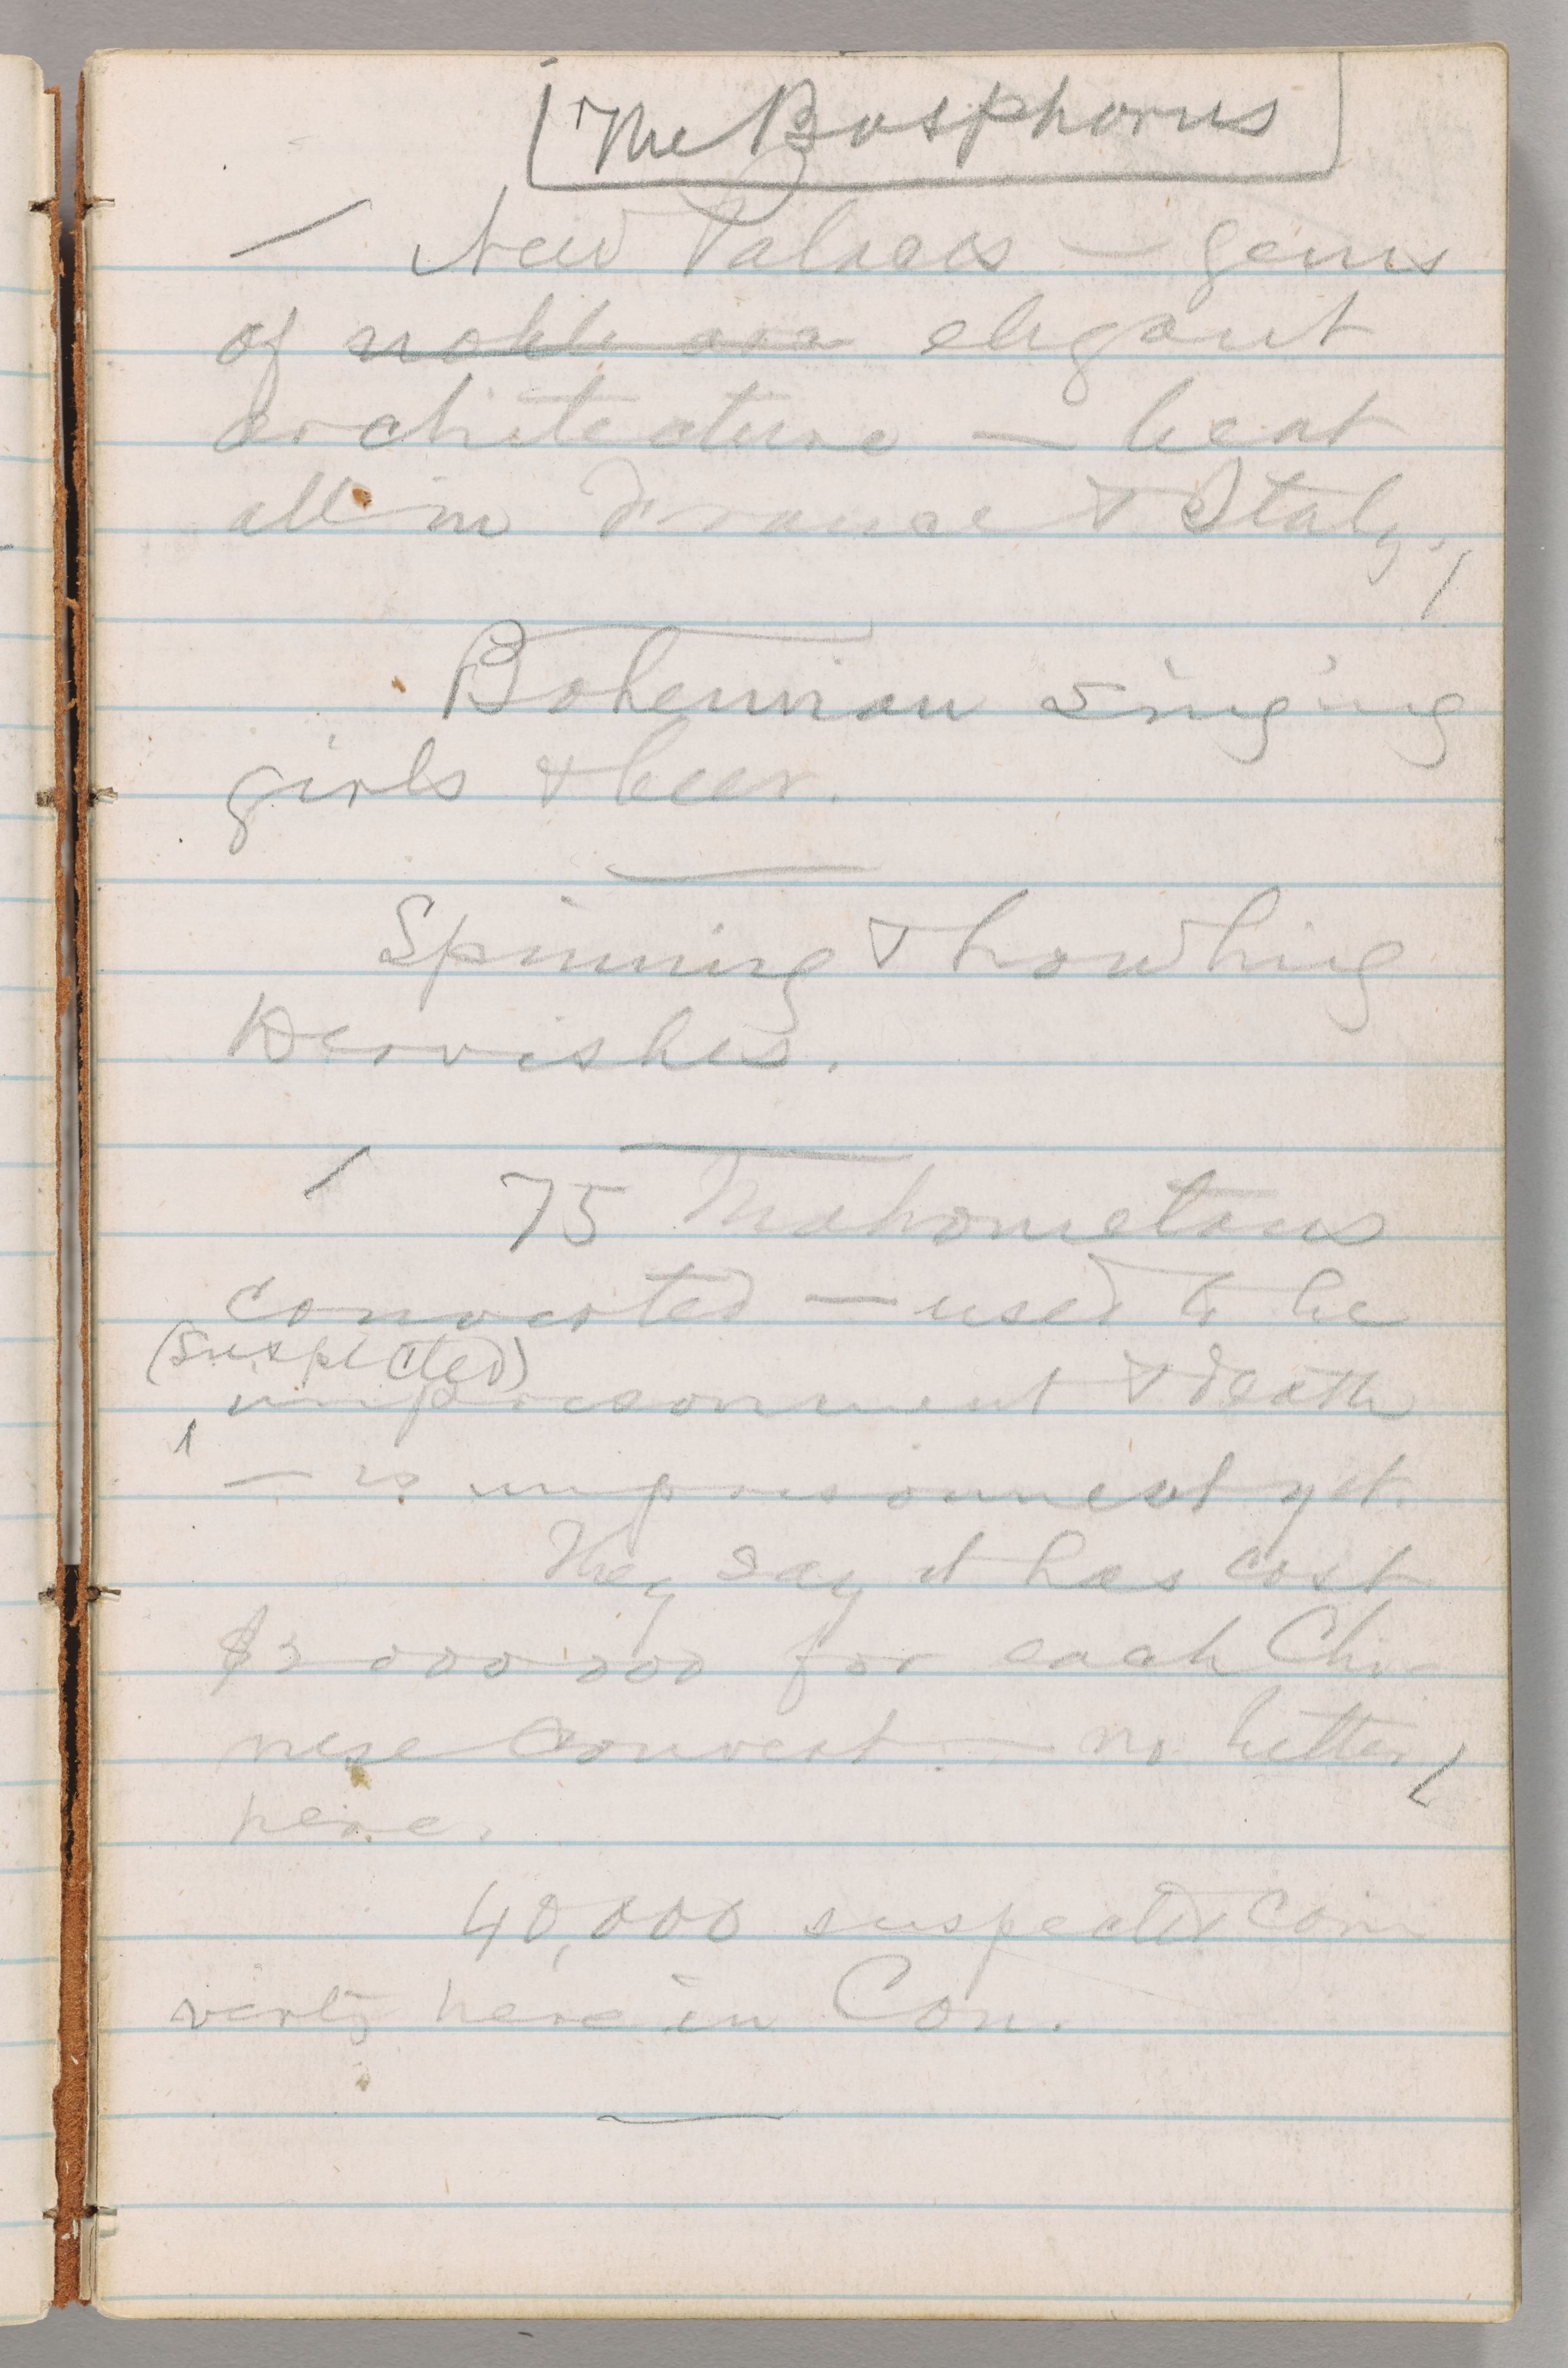 The Bosphorus
New Palaces — gems
of noble arc elegant
architecture — beat
all in France & Italy.
Bohemian singing
girls & beer.
Spinning & howling
Dervishes.
75 Mahometans
converted — used to be
(suspected)
imprisonment & death
— is imprisonment yet.
They say it has cost
$2 000 000 for each Chi-
nese convert — no better
here.
40,000 suspected con
verts here in Con.